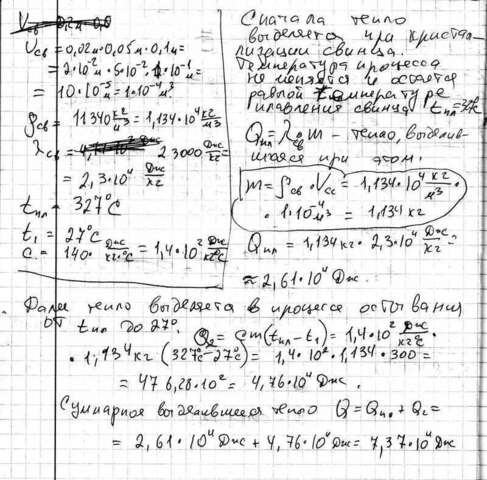 V св = 0,02м · 0,05м · 0,1м =
= 2·10⁻²м · 5·10⁻² · 1·10⁻¹м =
= 10·10⁻⁵м = 1·10⁻⁴м³
ρсв = 11340 кг/м³ = 1,134·10⁴ кг/м³
λсв = 23000 Дж/кг =
= 2,3·10⁴ Дж/кг
tпл = 327°C
t₁ = 27°C
c = 140 Дж/кг·°C = 1,4·10² Дж/кг°C
Сначала тепло
выделяется при кристал-
лизации свинца.
Температура процесса
не меняется и остается
равной температуре
плавления свинца tпл =
Qпл = λсв m – тепло, выделив-
шееся при этом.
m = ρсв · Vсв = 1,134·10⁴ кг/м³ ·
· 1·10⁻⁴м³ = 1,134 кг
Qпл = 1,134 кг · 2,3·10⁴ Дж/кг =
≈ 2,61·10⁴ Дж.
Далее тепло выделяется в процессе остывания
от tпл до 27°. Q₂ = cm(tпл – t₁) = 1,4·10² Дж/кг°C ·
· 1,134 кг (327°C – 27°C) = 1,4·10² · 1,134 · 300 =
= 476,28·10² = 4,76·10⁴ Дж.
Суммарное выделившееся тепло Q = Qпл + Q₂ =
= 2,61·10⁴ Дж + 4,76·10⁴ Дж = 7,37·10⁴ Дж